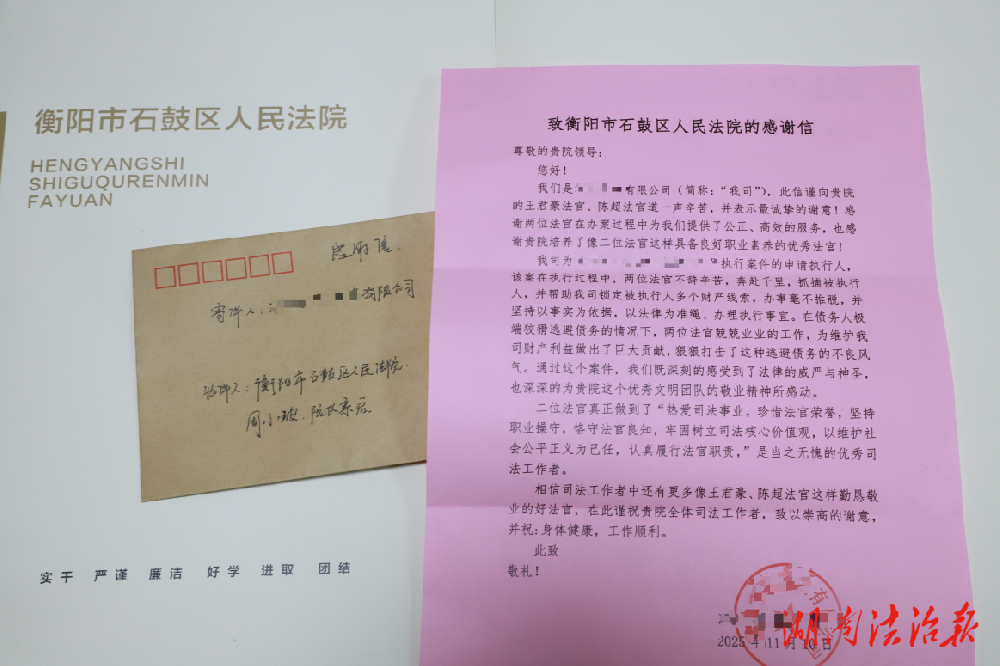 衡阳市石鼓区人民法院
HENGYANGSHI
SHIGUQURENMIN
FAYUAN
感谢信
寄件人:
有限公司
收件人:衡阳市石鼓区人民法院
实干 严谨 廉洁 好学 进取 团结
致衡阳市石鼓区人民法院的感谢信
尊敬的贵院领导:
您好!
我们是 有限公司(简称:“我司”),此信谨向贵院
的王君豪法官、陈超法官道一声辛苦,并表示最诚挚的谢意!感
谢两位法官在办案过程中为我们提供了公正、高效的服务,也感
谢贵院培养了像二位法官这样具备良好职业素养的优秀法官!
我司为 执行案件的申请执行人,
该案在执行过程中,两位法官不辞辛苦,奔赴千里,抓捕被执行
人,并帮助我司锁定被执行人多个财产线索,办事毫不拖脱,并
坚持以事实为依据,以法律为准绳、办理执行事宜。在债务人极
端狡猾逃避债务的情况下,两位法官兢兢业业的工作,为维护我
司财产利益做出了巨大贡献,狠狠打击了这种逃避债务的不良风
气。通过这个案件,我们既深刻的感受到了法律的威严与神圣,
也深深的为贵院这个优秀文明团队的敬业精神所感动。
二位法官真正做到了“热爱司法事业,珍惜法官荣誉,坚持
职业操守,恪守法官良知,牢固树立司法核心价值观,以维护社
会公平正义为己任,认真履行法官职责,”是当之无愧的优秀司
法工作者。
相信司法工作者中还有更多像王君豪、陈超法官这样勤恳敬
业的好法官,在此谨祝贵院全体司法工作者,致以崇高的谢意,
并祝:身体健康,工作顺利。
此致
敬礼!
有
2025年11月10日
湖南法治报